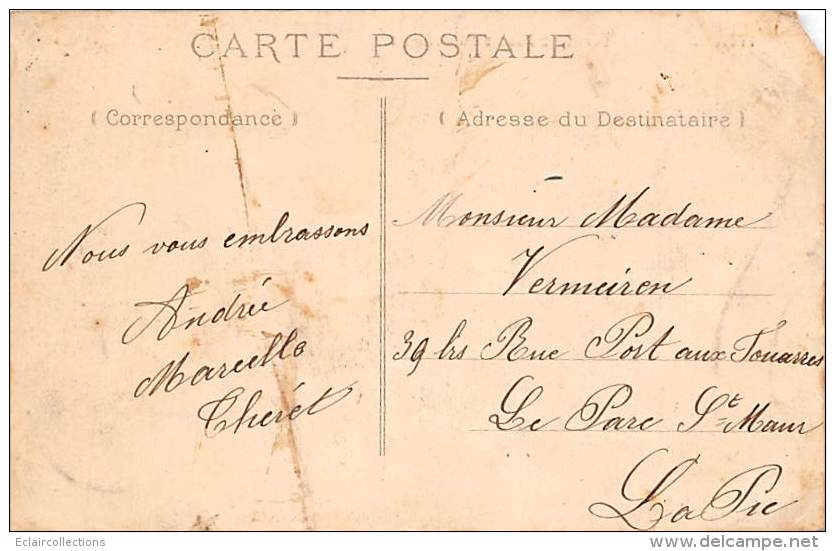 CARTE POSTALE
( Correspondance )
( Adresse du Destinataire )
Nous vous embrassons
Andrée
Marcelle
Théret
Monsieur Madame
Vermeiren
39 Rue Port aux Fouarres
Le Parc St Maur
La Pie
Eclaircollections
www.delcampe.net